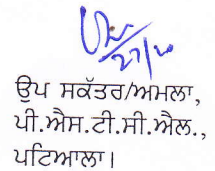 27/10
ਉਪ ਸਕੱਤਰ/ਅਮਲਾ,
ਪੀ.ਐਸ.ਟੀ.ਸੀ.ਐਲ.,
ਪਟਿਆਲਾ।